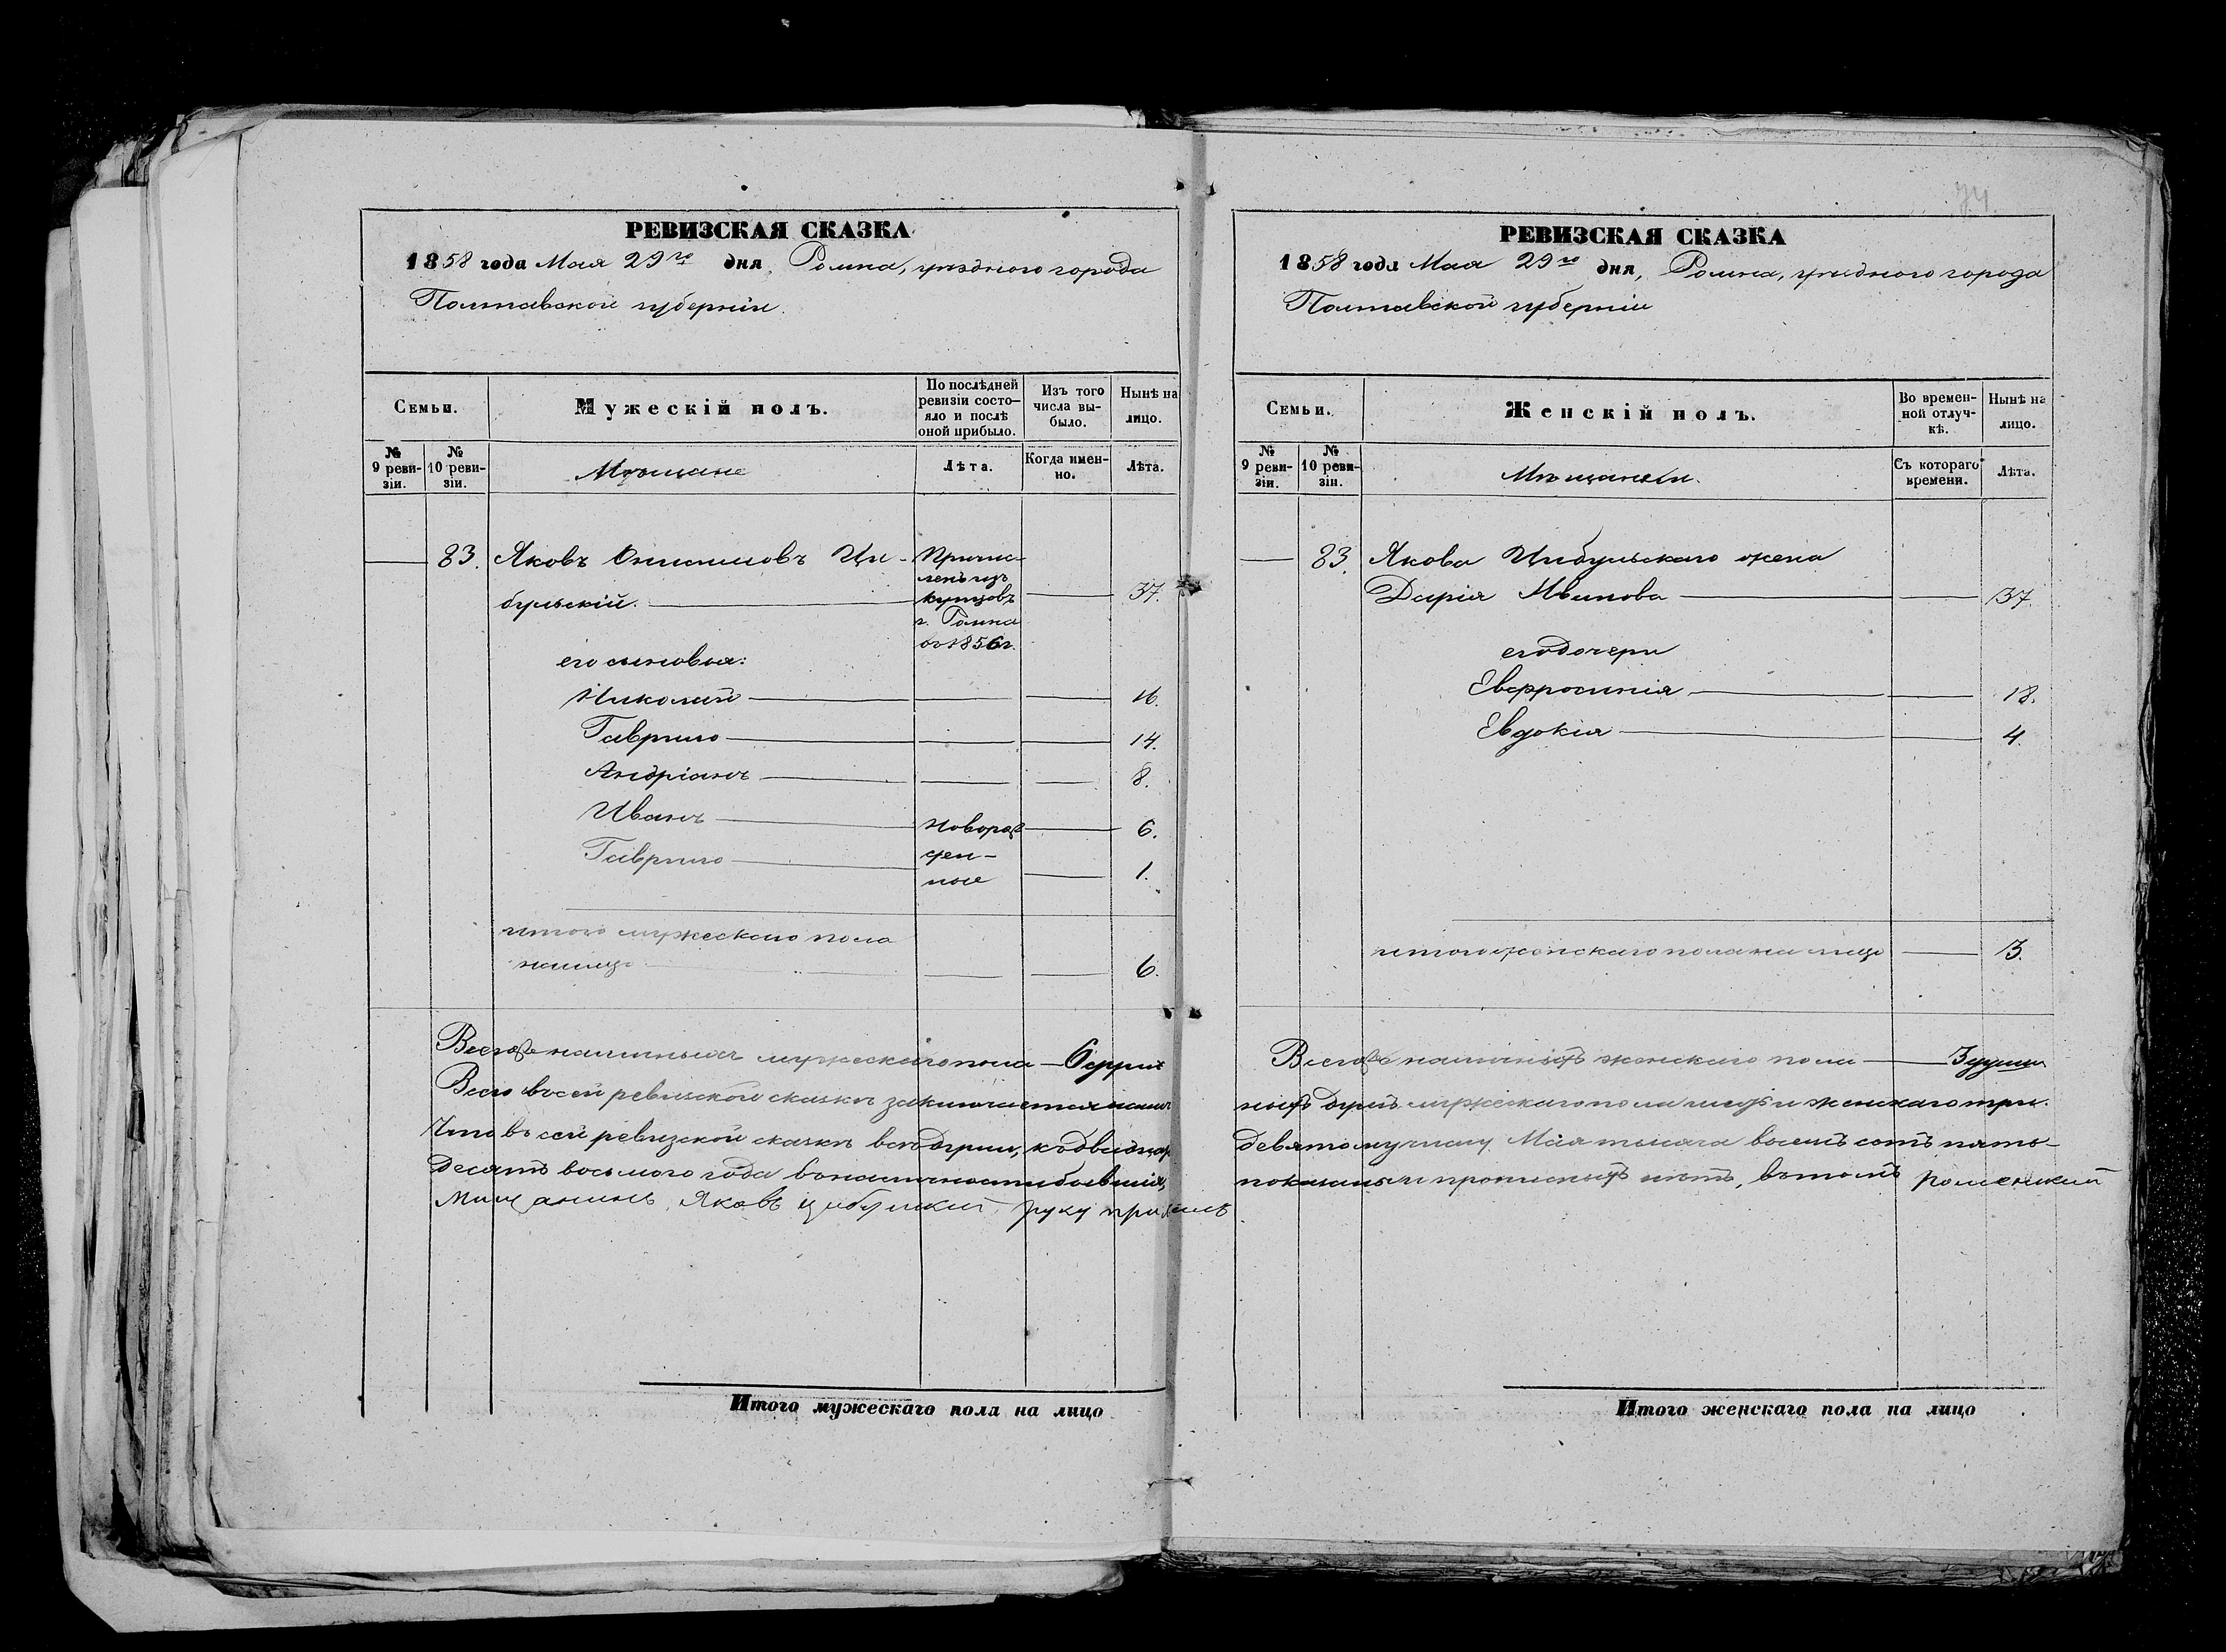 74
РЕВИЗСКАЯ СКАЗКА
1858 года Мая 29го дня, Ромна, уѣзднаго города
Полтавской губерніи.
Семьи.
Мужескій полъ.
По послѣдней ревизіи состо-
яло и послѣ
оной прибыло.
Изъ того
числа вы-
было.
Нынѣ на
лицо.
№
9 реви-
зіи.
№
10 реви-
зіи.
Мѣщане
Лѣта.
Когда имен-
но.
Лѣта.
83. Яковъ Онисимовъ Ци-
бульскій.
Причис-
ленъ изъ
купцовъ
г. Ромна
въ 1856 г.
37.
его сыновья:
Николай 16.
Гаврило 14.
Андріанъ 8.
Иванъ 6.
Гаврило 1.
новорож
ден-
ные
итого мужескаго пола
налицо 6.
Всегоже наличныхъ мужескаго пола — 6 душъ
Всего въ сей ревизской сказкѣ заключается налич
Что въ сей ревизской сказкѣ всѣ души, къ двадцать
десятъ восьмого года въ наличности бывшія,
Мищанинъ Яковъ Цибулский руку приложилъ
Итого мужескаго пола на лицо
РЕВИЗСКАЯ СКАЗКА
1858 года Мая 29го дня, Ромна, уѣзднаго города
Полтавской губерніи
Семьи.
Женскій полъ.
Во времен-
ной отлуч-
кѣ.
Нынѣ на
лицо.
№
9 реви-
зіи.
№
10 реви-
зіи.
Мѣщанки.
Съ котораго
времени.
Лѣта.
83. Якова Цибульскаго жена
Дарія Иванова 37.
его дочери
Евфросинія 18.
Евдокія 4.
итого женскаго пола на лицо 3.
Всегоже наличныхъ женскаго пола — 3 души
ныхъ душъ мужескаго пола шесть и женскаго три.
девятому числу Мая тысяча восемь сотъ пять-
показаны и прописныхъ нѣтъ, въ томъ роменский
Итого женскаго пола на лицо